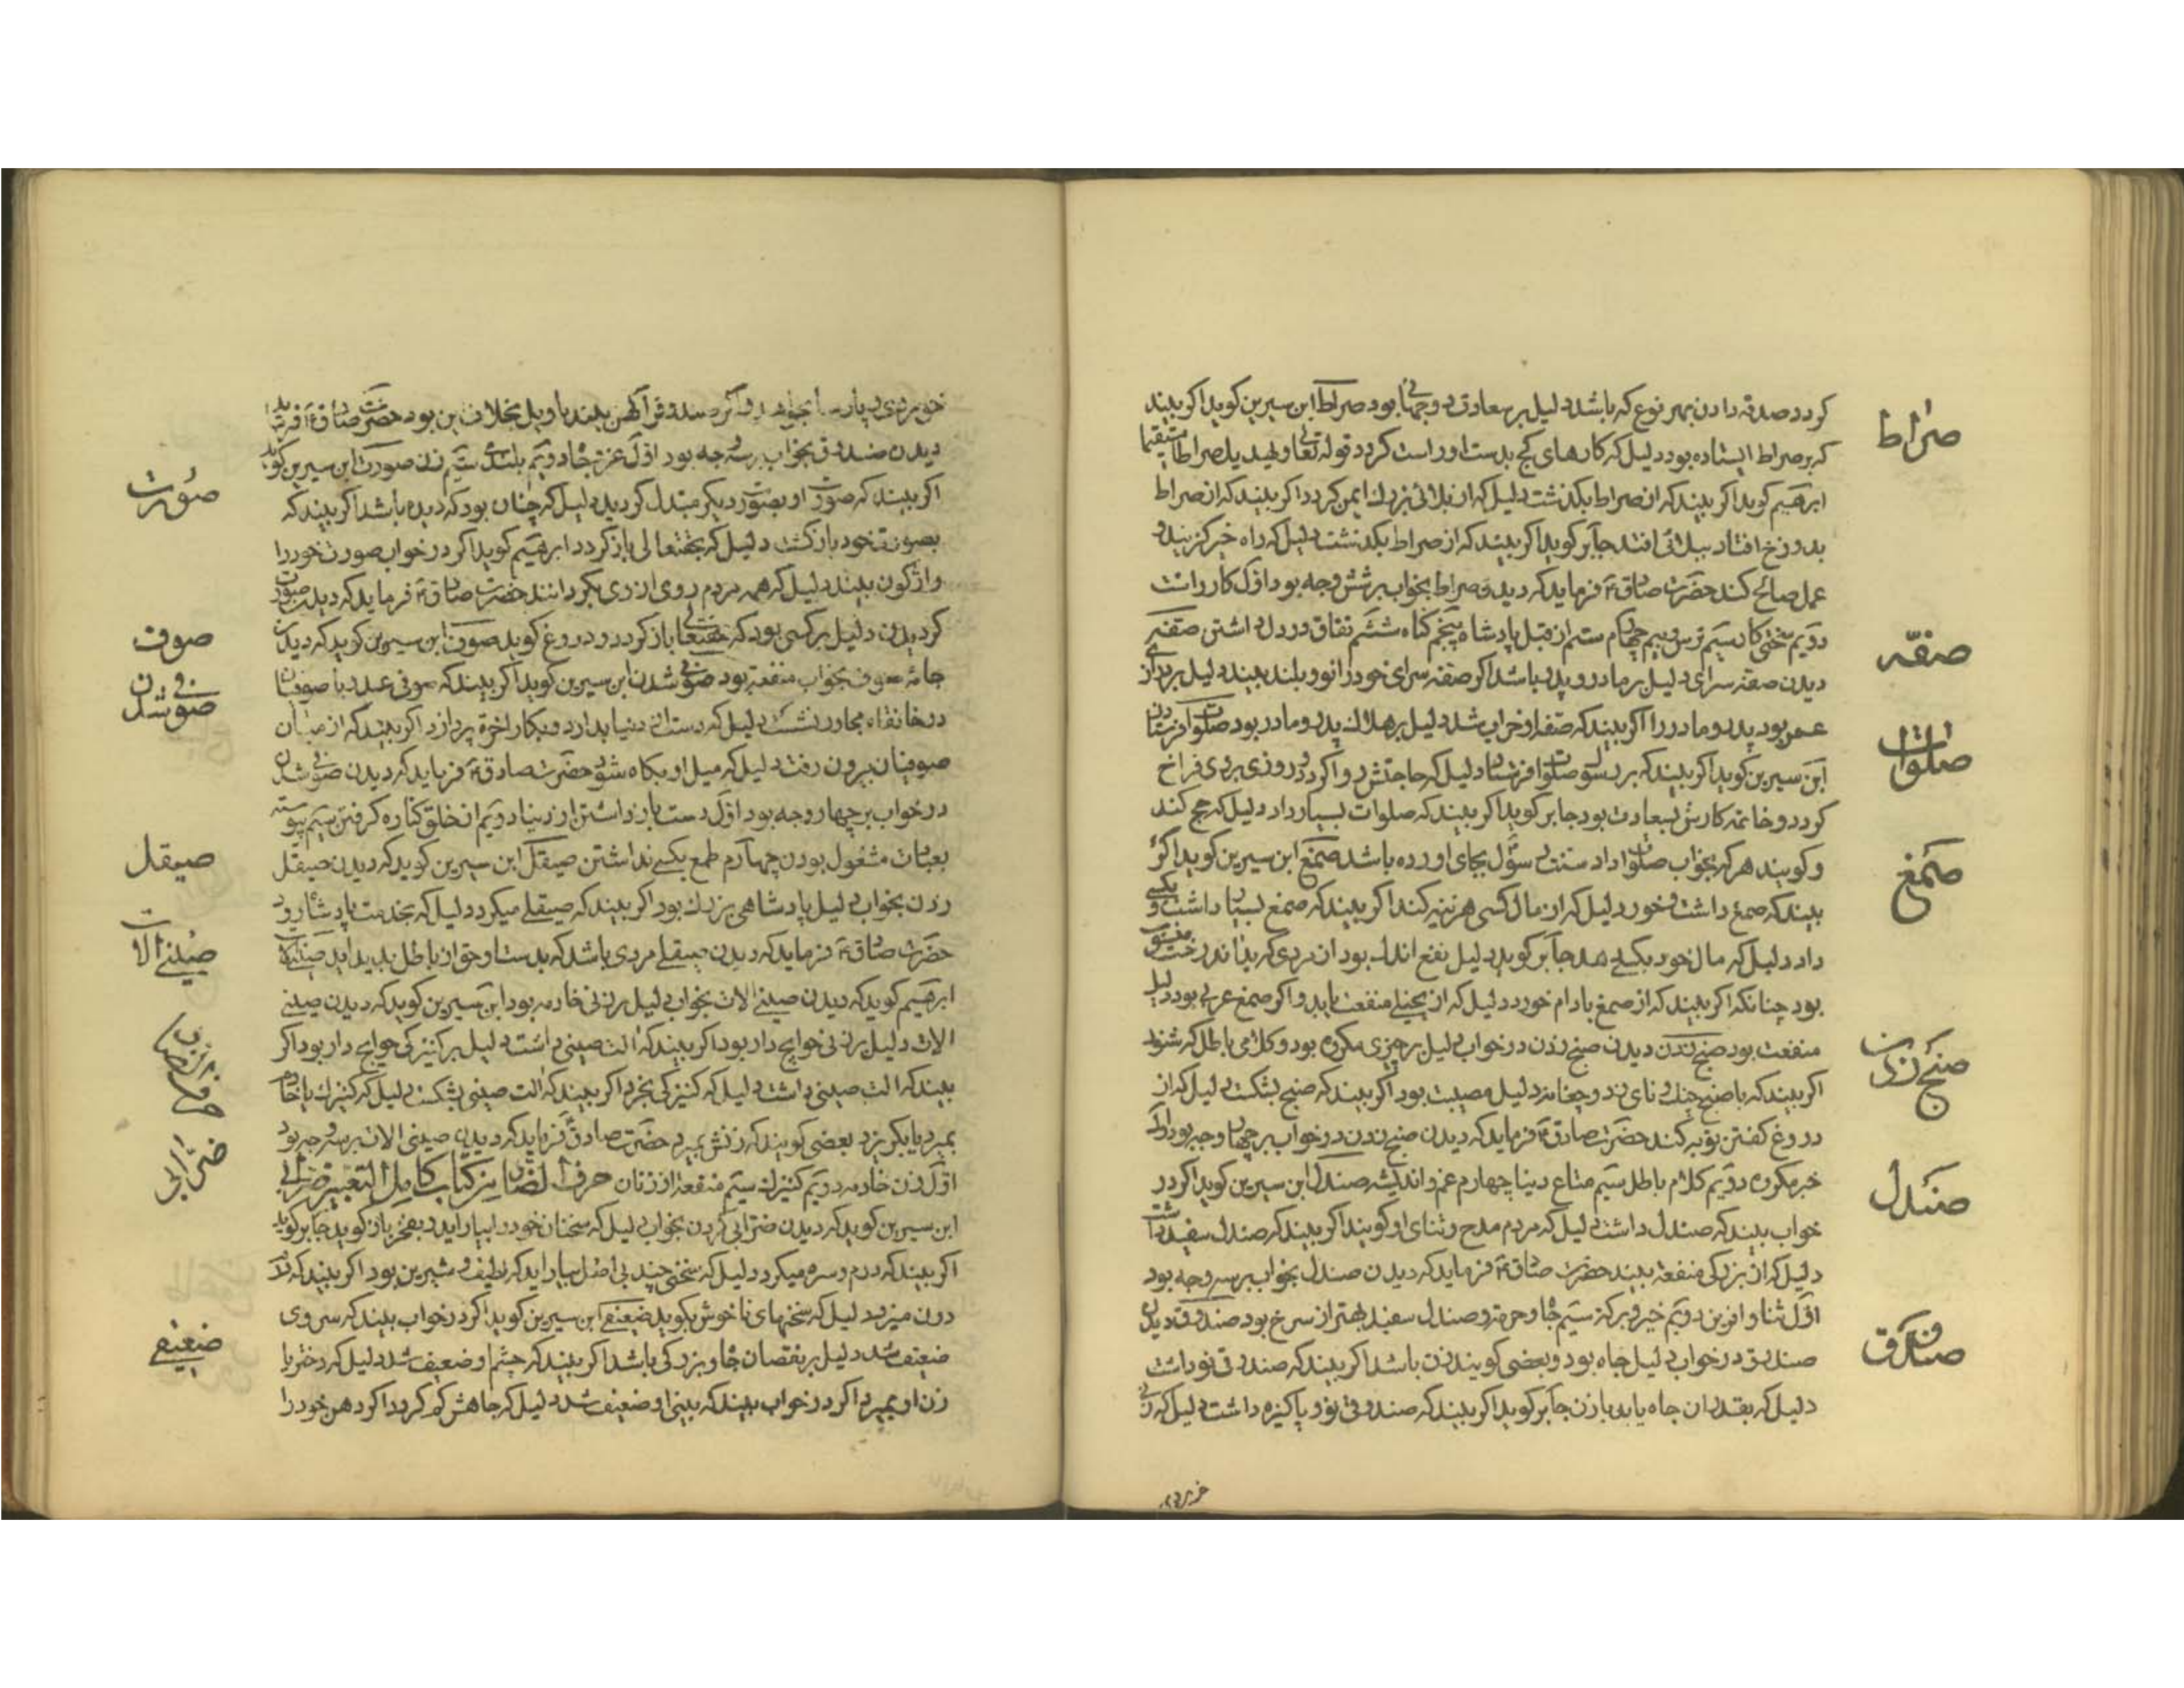 کردد صدقه دادن بهر نوع که باشد دلیل بر سعادت دوجهانی بود صراط ابن سیرین کوید اکر بیند
صراط
که بر صراط ایستاده بود دلیل که کارهای کج بدست او راست کردد قوله تعالی ولیهدیک صراطا مستقیما
ابرهیم کوید اکر بیند که از صراط بکذشت دلیل که از بلائی بزرك ایمن کردد اکر بیند که از صراط
بدوزخ افتاد ببلائی افتد جابر کوید اکر بیند که از صراط بکذشت دلیل که راه خیر کزیند و
عمل صالح کند حضرت صادق ع فرماید که دیدن صراط بخواب بر شش وجه بود اول کار راست
دویم سختی کار سیم ترس و بیم چهارم ستم از قبل پادشاه پنجم کناه ششم نفاق در دل داشتن صفه
صفه
دیدن صفه سرای دلیل بر مادر و پدر باشد اکر صفه سرای خود را نو و بلند بیند دلیل بر درازی
عمر بود پدر و مادر را اکر بیند که صفه او خراب شد دلیل بر هلاك پدر و مادر بود صلوات فرستادن
صلوات
ابن سیرین کوید اکر بیند که بر رسول صلوات فرستاد دلیل که حاجتش روا کردد روزی بر وی فراخ
کردد و خاتمه کارش بسعادت بود جابر کوید اکر بیند که صلوات بسیار داد دلیل که حج کند
و کویند هر که بخواب صلوات داد سنت رسول بجای اورده باشد صمغ ابن سیرین کوید اکر
صمغ
بیند که صمغ داشت و خورد دلیل که از مال کسی هزینه کند اکر بیند که صمغ بسیار داشت و بکسی
داد دلیل که مال خود بکسی دهد جابر کوید دلیل نفع اندك بود از مردی که بدان درخت منسوب
بود چنانکه اکر بیند که از صمغ بادام خورد دلیل که از بخیلی منفعت یابد و اکر صمغ عربی بود دلیل
منفعت بود صنج زدن دیدن صنج زدن در خواب دلیل بر چیزی مکروه بود و کلامی باطل که شنود
صنج زدن
اکر بیند که با صنج چنك و نای زد و چغانه دلیل مصیبت بود اکر بیند که صنج بشکست دلیل که از
دروغ کفتن توبه کند حضرت صادق ع فرماید که دیدن صنج زدن در خواب بر چهار وجه بود اول
خبر مکروه دویم کلام باطل سیم متاع دنیا چهارم غم و اندیشه صندل ابن سیرین کوید اکر در
صندل
خواب بیند که صندل داشت دلیل که مردم مدح و ثنای او کویند اکر بیند که صندل سفید داشت
دلیل که از بزرکی منفعة بیند حضرت صادق ع فرماید که دیدن صندل بخواب بر سه وجه بود
اول ثنا و افرین دویم خیر و برکة سیم جاه و حرمة و صندل سفید بهتر از سرخ بود صندوق دیدن
صندوق در خواب دلیل جاه بود و بعضی کویند زن باشد اکر بیند که صندوق نو داشت
صندوق
دلیل که بقدر ان جاه یابد یا زن جابر کوید اکر بیند که صندوق نو و پاکیزه داشت دلیل که زنی
دیدن صندوق بخواب بر سه وجه بود اول عز و جاه دویم بلندی سیم زن صورت ابن سیرین کوید
صورت
اکر بیند که صورت او بصورت دیکر مبدل کردید دلیل که چنان بود که دیده باشد اکر بیند که
بصورت خود باز کشت دلیل که بحقتعالی باز کردد ابرهیم کوید اکر در خواب صورت خود را
واژکون بیند دلیل که همه مردم روی از وی بکردانند حضرت صادق ع فرماید که دیدن صورت
کردیدن دلیل بر کسی بود که حقتعالی باز کردد و دروغ کوید صوف ابن سیرین کوید که دیدن
صوف
جامهٔ صوف بخواب منفعة بود صوفی شدن ابن سیرین کوید اکر بیند که صوفی شد و با صوفیان
صوفی شدن
در خانقاه مجاور نشست دلیل که دست از دنیا بدارد و بکار اخرة پردازد اکر بیند که از میان
صوفیان بیرون رفت دلیل که میل او بکاه شود حضرت صادق ع فرماید که دیدن صوفی شدن
در خواب بر چهار وجه بود اول دست باز داشتن از دنیا دویم از خلق کناره کرفتن سیم پیوسته
بعبادت مشغول بودن چهارم طمع بکسی نداشتن صیقل ابن سیرین کوید که دیدن صیقل
صیقل
زدن بخواب دلیل پادشاهی بزرك بود اکر بیند که صیقلی میکرد دلیل که بخدمت پادشاه رود
حضرت صادق ع فرماید که دیدن صیقلی مردی باشد که بدست او حق از باطل پدید اید
صینی الات
ابرهیم کوید که دیدن صینی الات بخواب دلیل بر زنی خادمه بود ابن سیرین کوید که دیدن صینی
الات دلیل بر زنی حوایج دار بود اکر بیند که الت صینی داشت دلیل بر کنیزکی حوایج دار بود اکر
بیند که الت صینی داشت دلیل که کنیزکی بخرد اکر بیند که الت صینی بشکست دلیل که کنیزك یا خادم
بمیرد یا بکریزد بعضی کویند که زنش بمیرد حضرت صادق ع فرماید که دیدن صینی الات بر سه وجه بود
اول زن خادمه دویم کنیزك سیم منفعة از زنان حرف الضاد من کتاب کامل التعبیر ضرابی
ضرابی
ابن سیرین کوید که دیدن ضرابی کردن بخواب دلیل که سخنان خود را بیاراید و بفخر باز کوید جابر کوید
اکر بیند که درم و سره میکرد دلیل که سخنی چند بی اصل بیاراید که لطیف و شیرین بود اکر بیند که
دون میزد دلیل که سخنهای ناخوش بکوید ضعیفی ابن سیرین کوید اکر در خواب بیند که سر وی
ضعیفی
ضعیف شد دلیل بر نقصان جاه و بزرکی باشد اکر بیند که چشم او ضعیف شد دلیل که دختر یا
زن او بمیرد اکر در خواب بیند که بینی او ضعیف شد دلیل که جاهش کم کردد اکر دهن خود را